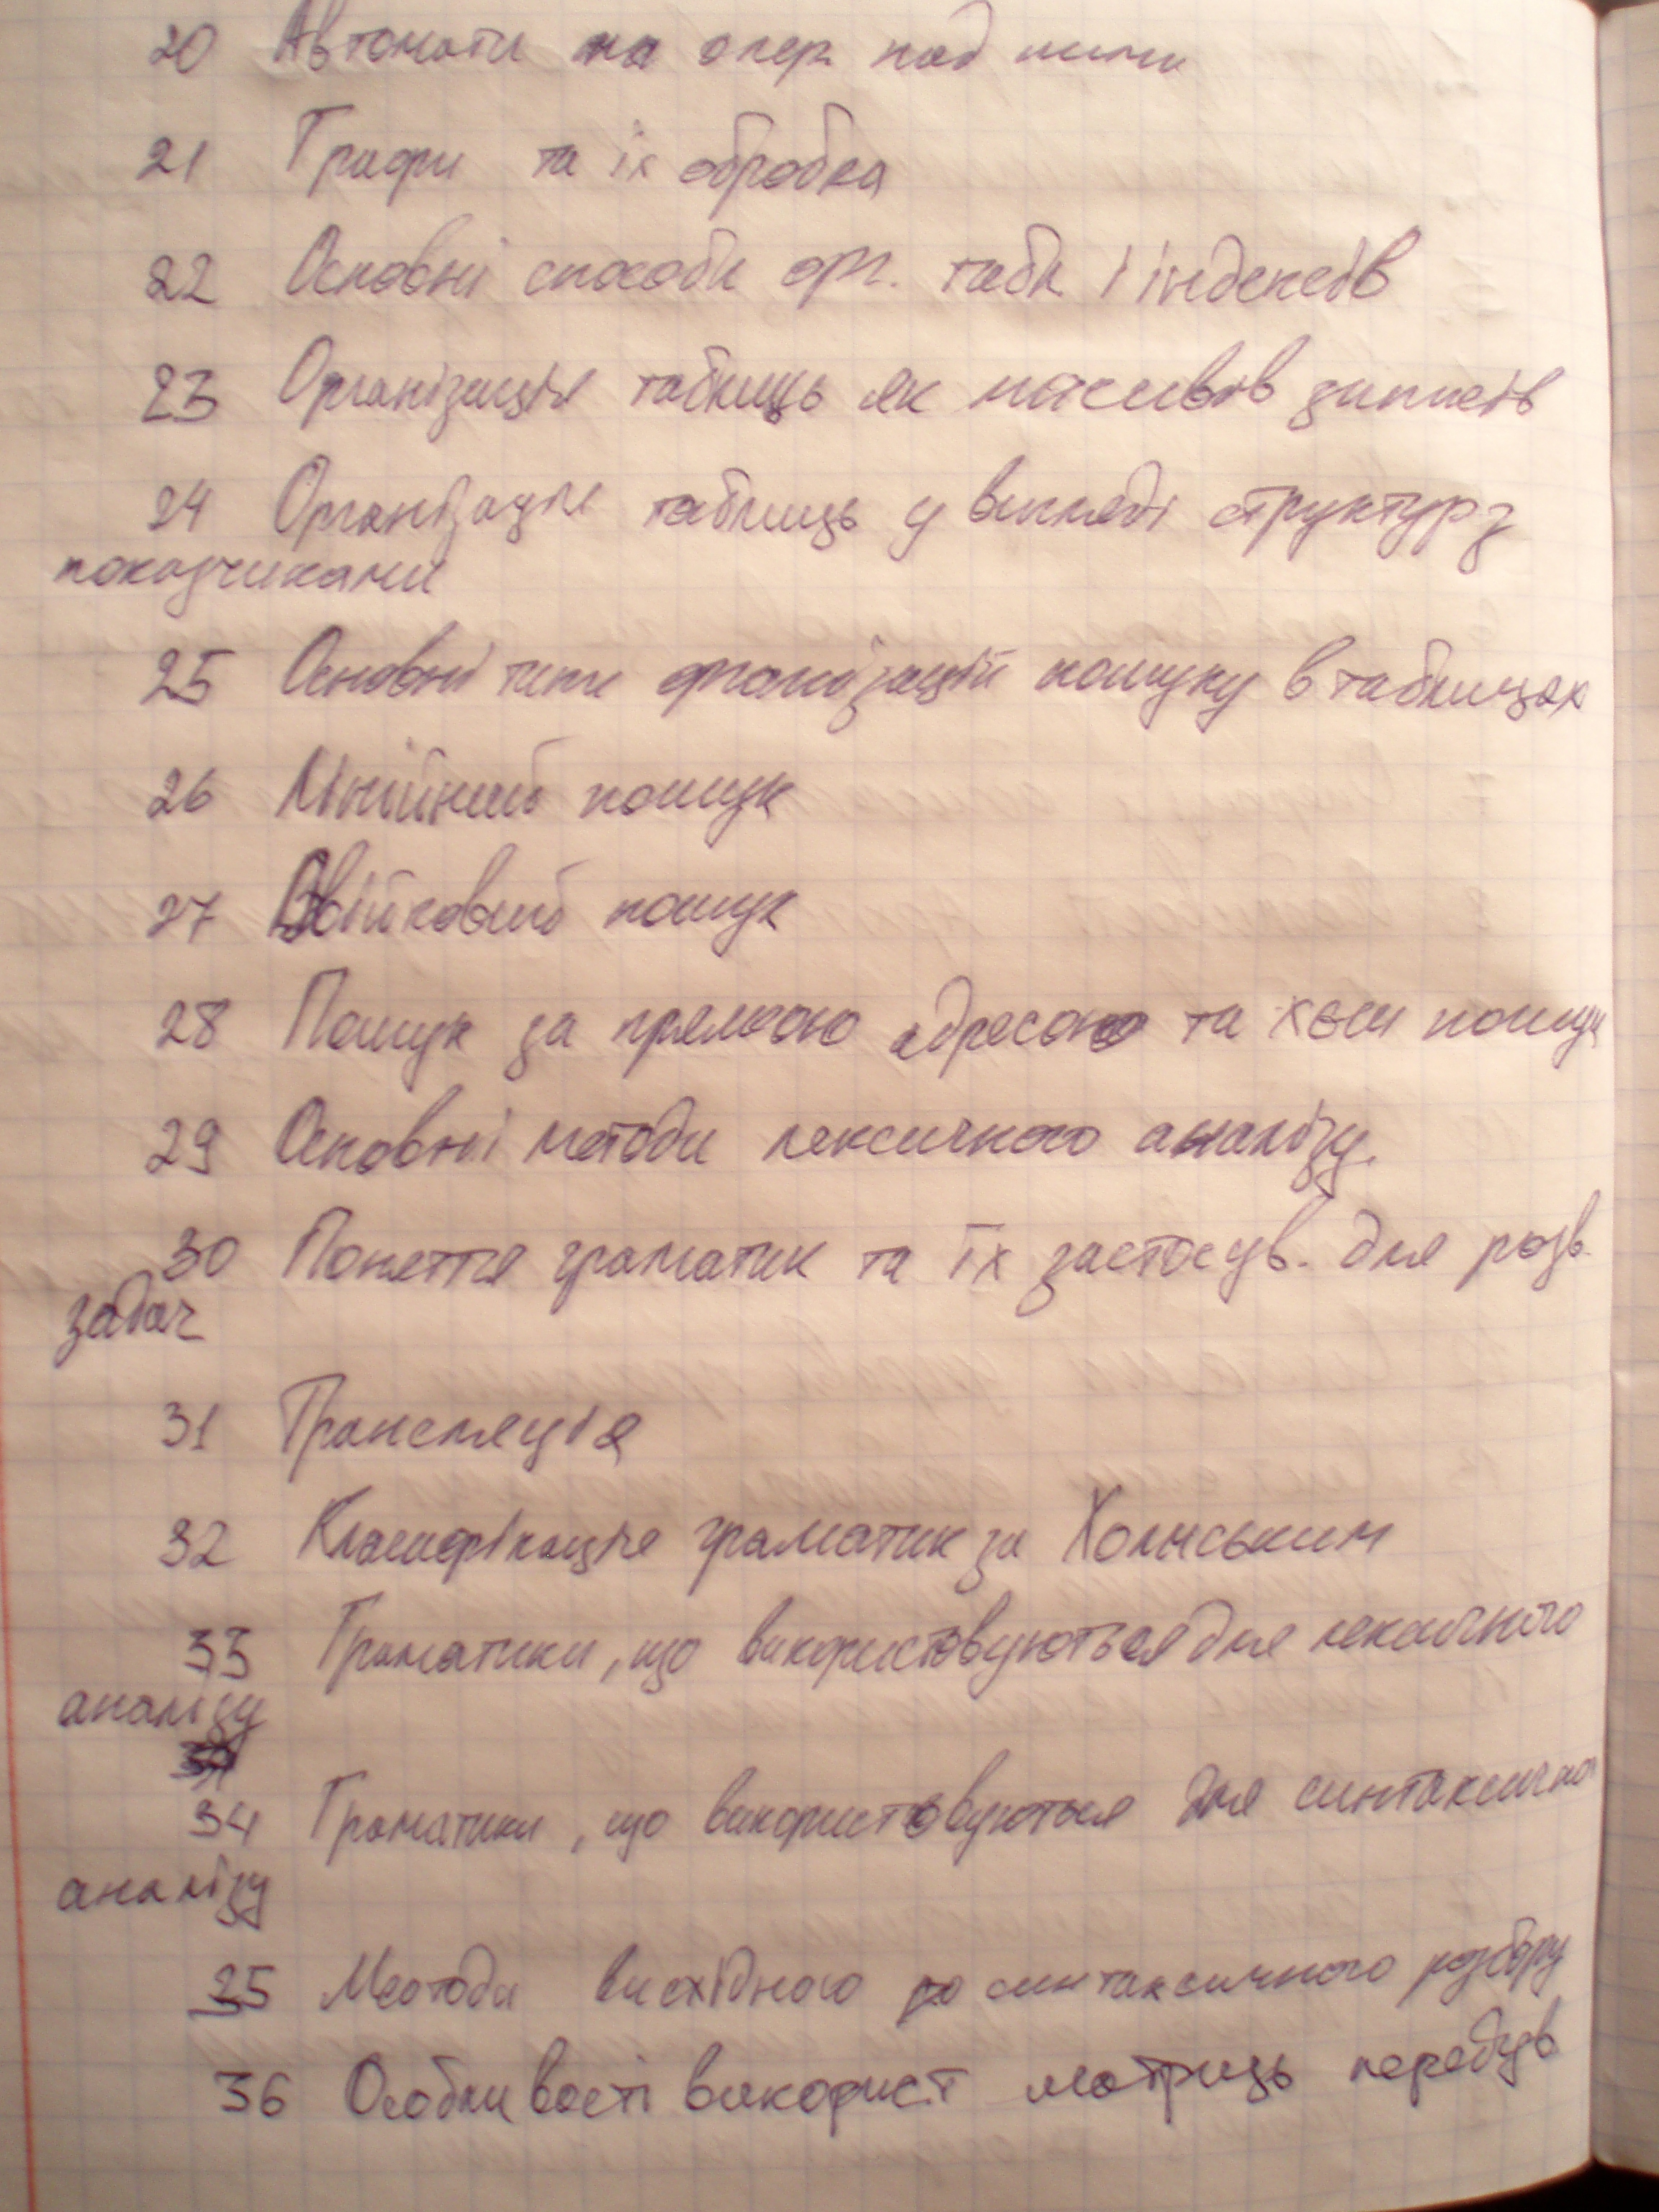 20 Автомати на опер. над ними
21 Графи та їх обробка
22 Основні способи орг. табл і індексів
23 Організація таблиць як масивів записів
24 Організація таблиць у вигляді структур з
показчиками
25 Основні типи організацій пошуку в таблицях
26 Лінійний пошук
27 Двійковий пошук
28 Пошук за прямою адресою та хеш пошук
29 Основні методи лексичного аналізу.
30 Поняття граматик та їх застосув. для розв.
задач
31 Трансляція
32 Класифікація граматик за Хомським
33 Граматики, що використовуються для лексичного
аналізу
34 Граматики, що використовуються для синтаксично
аналізу
35 Методи висхідного синтаксичного розбору
36 Особливості використ матриць передув